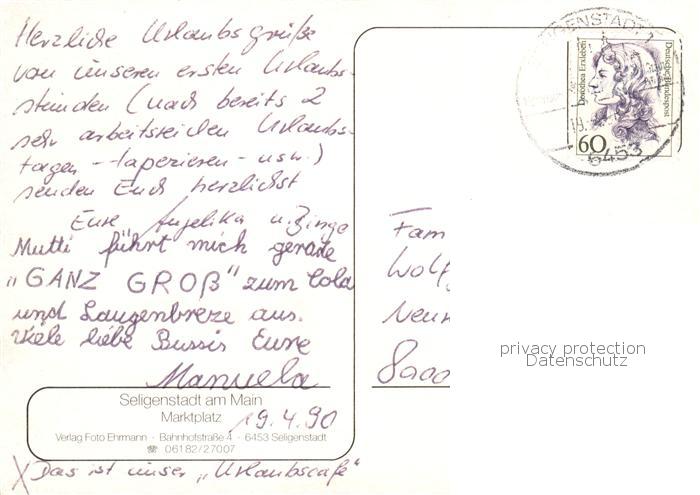 Herzliche Urlaubsgrüße
von unseren ersten Urlaubs-
stunden (nach bereits 2
sehr arbeitsreichen Urlaubs-
tagen - tapezieren - usw.)
senden Euch herzlichst
Eure Angelika u.
Mutti führt mich gerade
„GANZ GROß" zum Cola
und Laugenbreze aus.
Viele liebe Bussis Eure
Manuela
Seligenstadt am Main
Marktplatz
19.4.90
Verlag Foto Ehrmann · Bahnhofstraße 4 · 6453 Seligenstadt
☎ 06182/27007
X Das ist unser „Urlaubscafé"
Dorothea Erxleben
Deutsche Bundespost
60
6453
Fam
Wolf
Neu
8000
privacy protection
Datenschutz